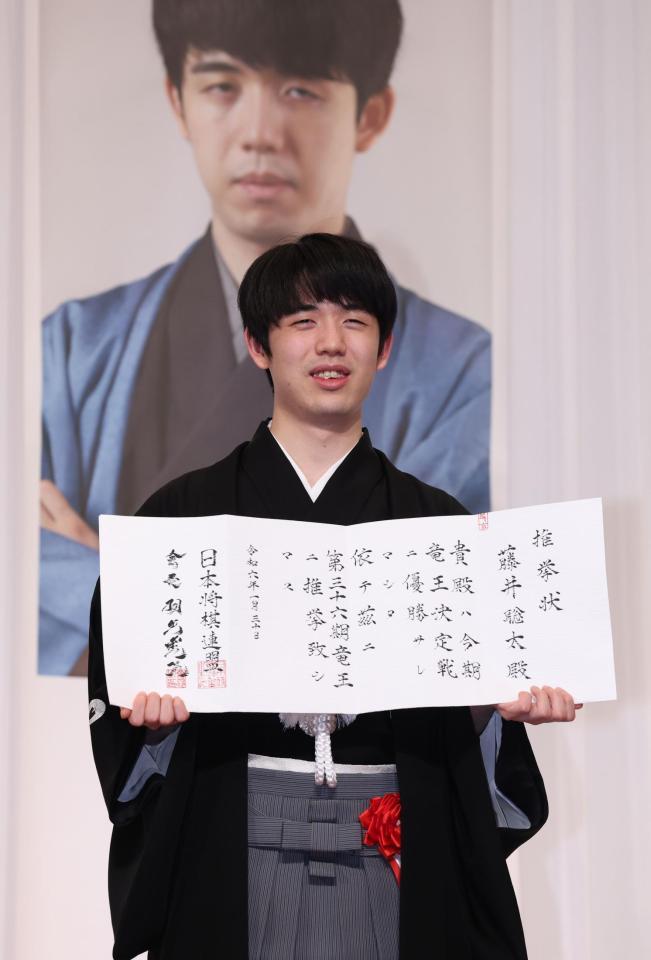 推挙状
藤井聡太殿
貴殿ハ今期
竜王決定戦
ニ優勝サレ
マシタ
依テ茲ニ
第三十六期竜王
ニ推挙致シ
マス
令和六年一月三十日
日本将棋連盟
會長 羽生善治